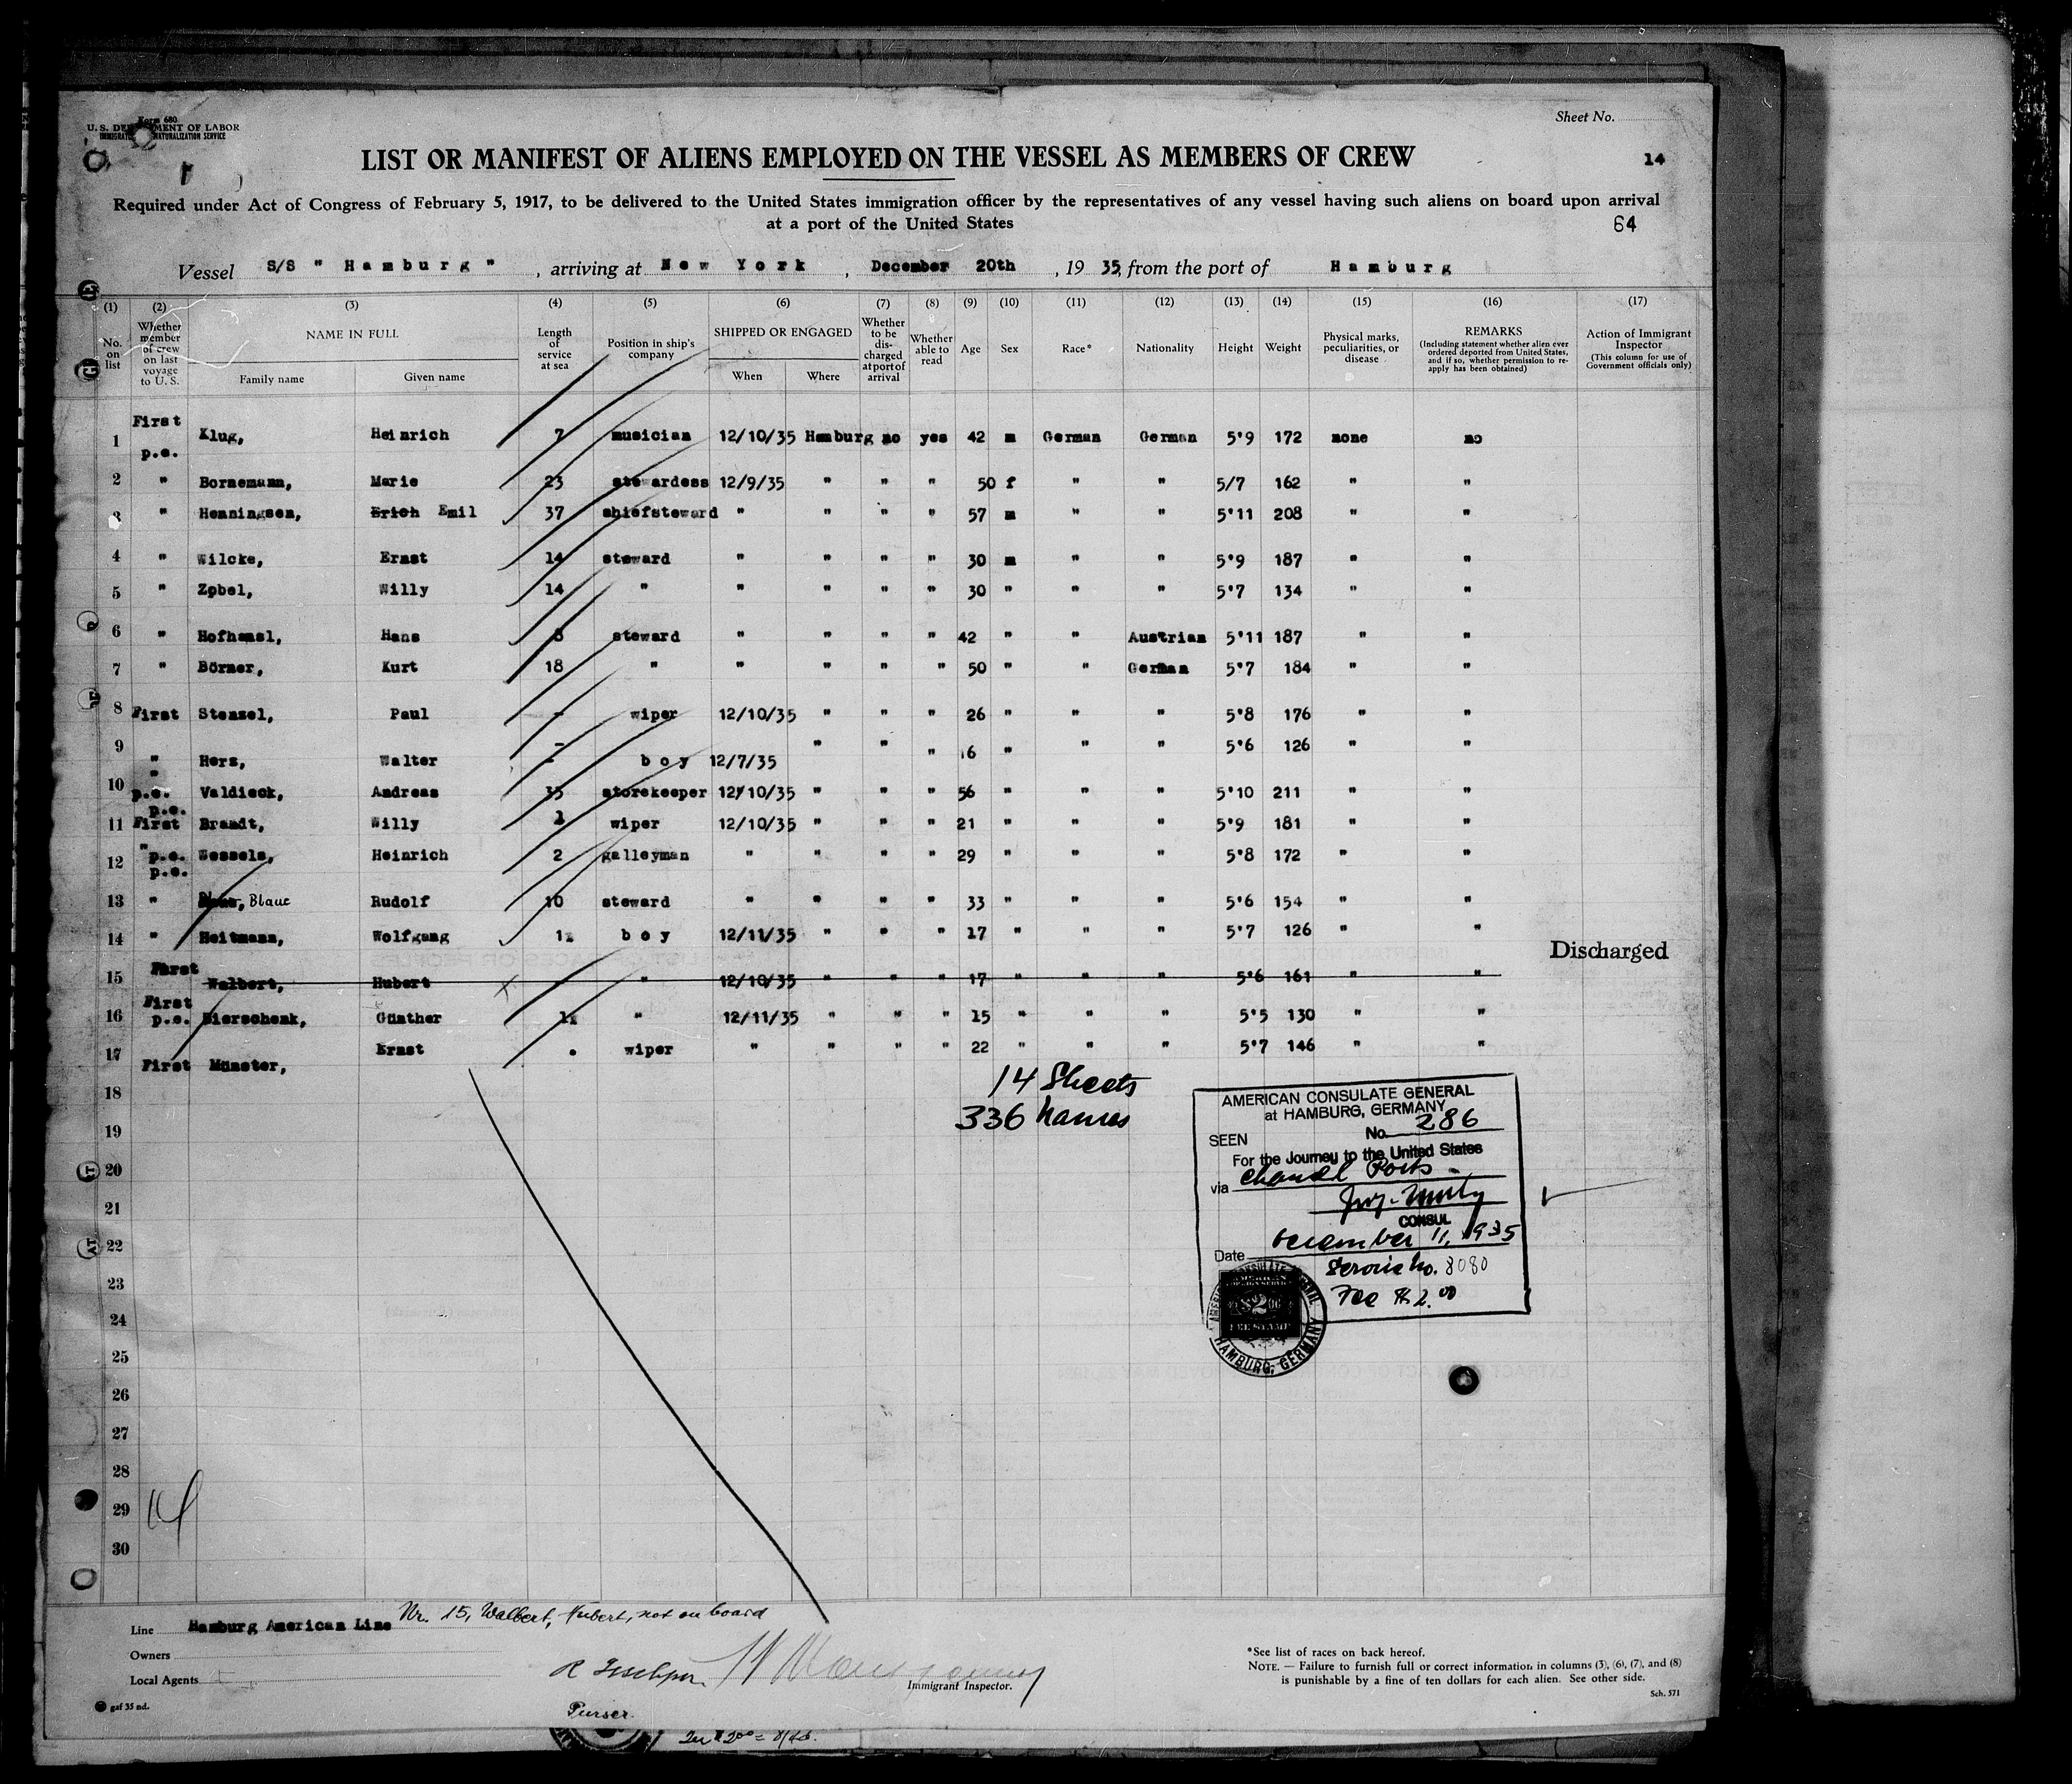 Form 680
U. S. DEPARTMENT OF LABOR
IMMIGRATION NATURALIZATION SERVICE
Sheet No.
LIST OR MANIFEST OF ALIENS EMPLOYED ON THE VESSEL AS MEMBERS OF CREW
14
Required under Act of Congress of February 5, 1917, to be delivered to the United States immigration officer by the representatives of any vessel having such aliens on board upon arrival
at a port of the United States
64
Vessel S/S " Hamburg " , arriving at New York , December 20th , 19 35, from the port of Hamburg
(1) (2) (3) (4) (5) (6) (7) (8) (9) (10) (11) (12) (13) (14) (15) (16) (17)
No. on list Whether member of crew on last voyage to U. S. NAME IN FULL Family name Given name Length of service at sea Position in ship's company SHIPPED OR ENGAGED When Where Whether to be discharged at port of arrival Whether able to read Age Sex Race* Nationality Height Weight Physical marks, peculiarities, or disease REMARKS (Including statement whether alien ever ordered deported from United States, and if so, whether permission to re-apply has been obtained) Action of Immigrant Inspector (This column for use of Government officials only)
1 First p.e. Klug, Heinrich 7 musician 12/10/35 Hamburg no yes 42 m German German 5'9 172 none no
2 " Bornemann, Marie 23 stewardess 12/9/35 " " " 50 f " " 5/7 162 " "
3 " Henningsen, Erich Emil 37 chiefsteward " " " " 57 m " " 5'11 208 " "
4 " Wilcke, Ernst 14 steward " " " " 30 m " " 5'9 187 " "
5 " Zobel, Willy 14 " " " " " 30 " " " 5'7 134 " "
6 " Hofhansl, Hans 8 steward " " " " 42 " " Austrian 5'11 187 " "
7 " Börner, Kurt 18 " " " " " 50 " " German 5'7 184 " "
8 First Stenzel, Paul - wiper 12/10/35 " " " 26 " " " 5'8 176 " "
9 " Hers, Walter - boy 12/7/35 " " " 16 " " " 5'6 126 " "
10 " p.e. Valdieck, Andreas 35 storekeeper 12/10/35 " " " 56 " " " 5'10 211 " "
11 p.e. First Brandt, Willy 1 wiper 12/10/35 " " " 21 " " " 5'9 181 " "
12 " p.e. Wessels, Heinrich 2 galleyman " " " " 29 " " " 5'8 172 " "
p.e.
13 " Blaue Rudolf 10 steward " " " " 33 " " " 5'6 154 " "
14 " Heitmann, Wolfgang 1 boy 12/11/35 " " " 17 " " " 5'7 126 " "
Discharged
15 First Walbert, Hubert - " 12/10/35 " " " 17 " " " 5'6 161 " "
16 First p.e. Bierschenk, Günther 1 " 12/11/35 " " " 15 " " " 5'5 130 " "
17 First Münster, Ernst wiper " " " " 22 " " " 5'7 146 " "
18
19
20
21
22
23
24
25
26
27
28
29
30
14 Sheets
336 names
AMERICAN CONSULATE GENERAL
at HAMBURG, GERMANY
SEEN No. 286
For the Journey to the United States
via Channel Ports
CONSUL
Date December 11, 1935
Service No. 8080
Fee $ 2.00
HAMBURG, GERMANY
Nr. 15, Walbert, Hubert, not on board
Line Hamburg American Line
Owners
Local Agents
Immigrant Inspector.
Purser.
*See list of races on back hereof.
NOTE. — Failure to furnish full or correct information in columns (3), (6), (7), and (8)
is punishable by a fine of ten dollars for each alien. See other side.
gaf 35 nd.
Sch. 571